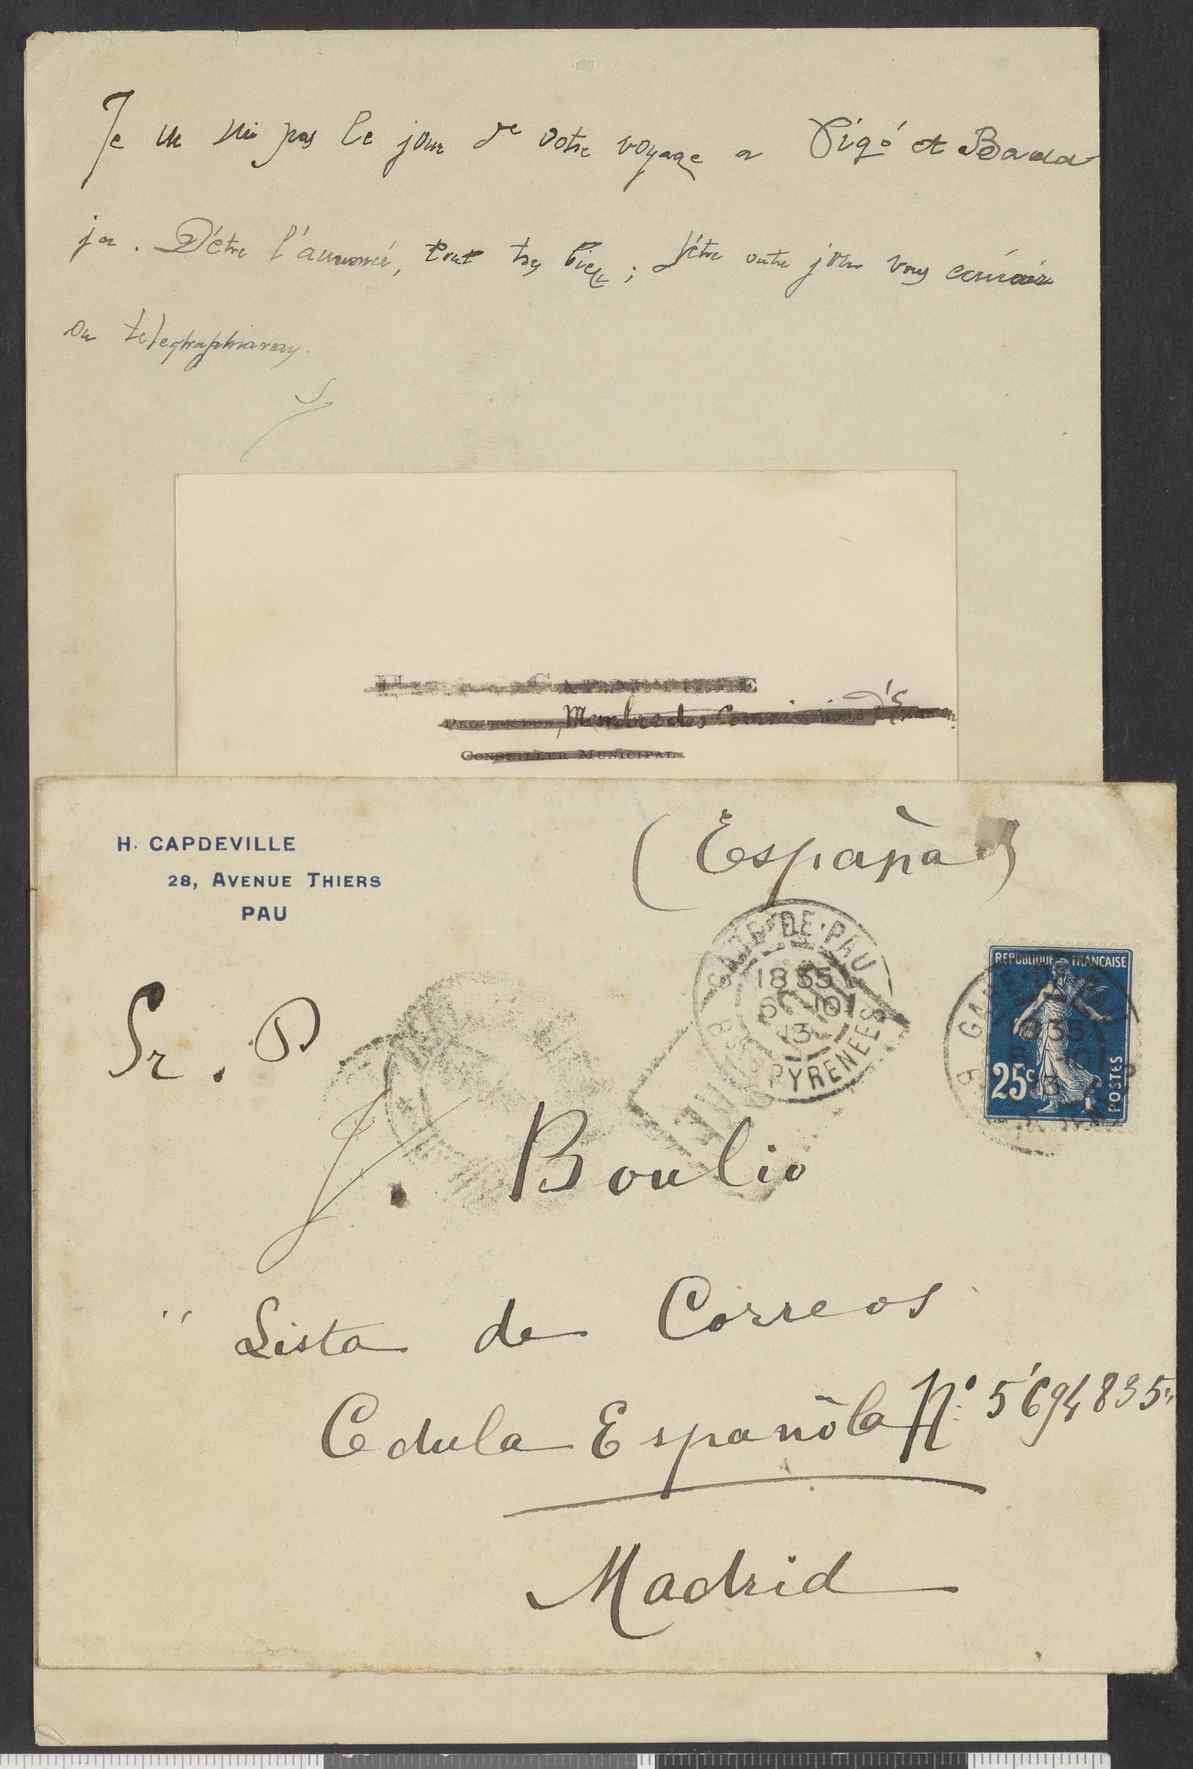 Je ne sui pas le jour de votre voyage a Vigó et Bada
joz. D'être l'annoncé, tout trés bien; d'être outre jour vous
ou telegraphiaray.
Membre des Commissions d'Examen
CONSEILLER MUNICIPAL
H. CAPDEVILLE
28, AVENUE THIERS
PAU
(España)
GARE DE PAU
18 35
6 -10
13
PYRENEES
REPUBLIQUE FRANÇAISE
25c
POSTES
Sr. D
J. Boulio
" Lista de Correos
Cedula Española Nº 5'694835"
Madrid